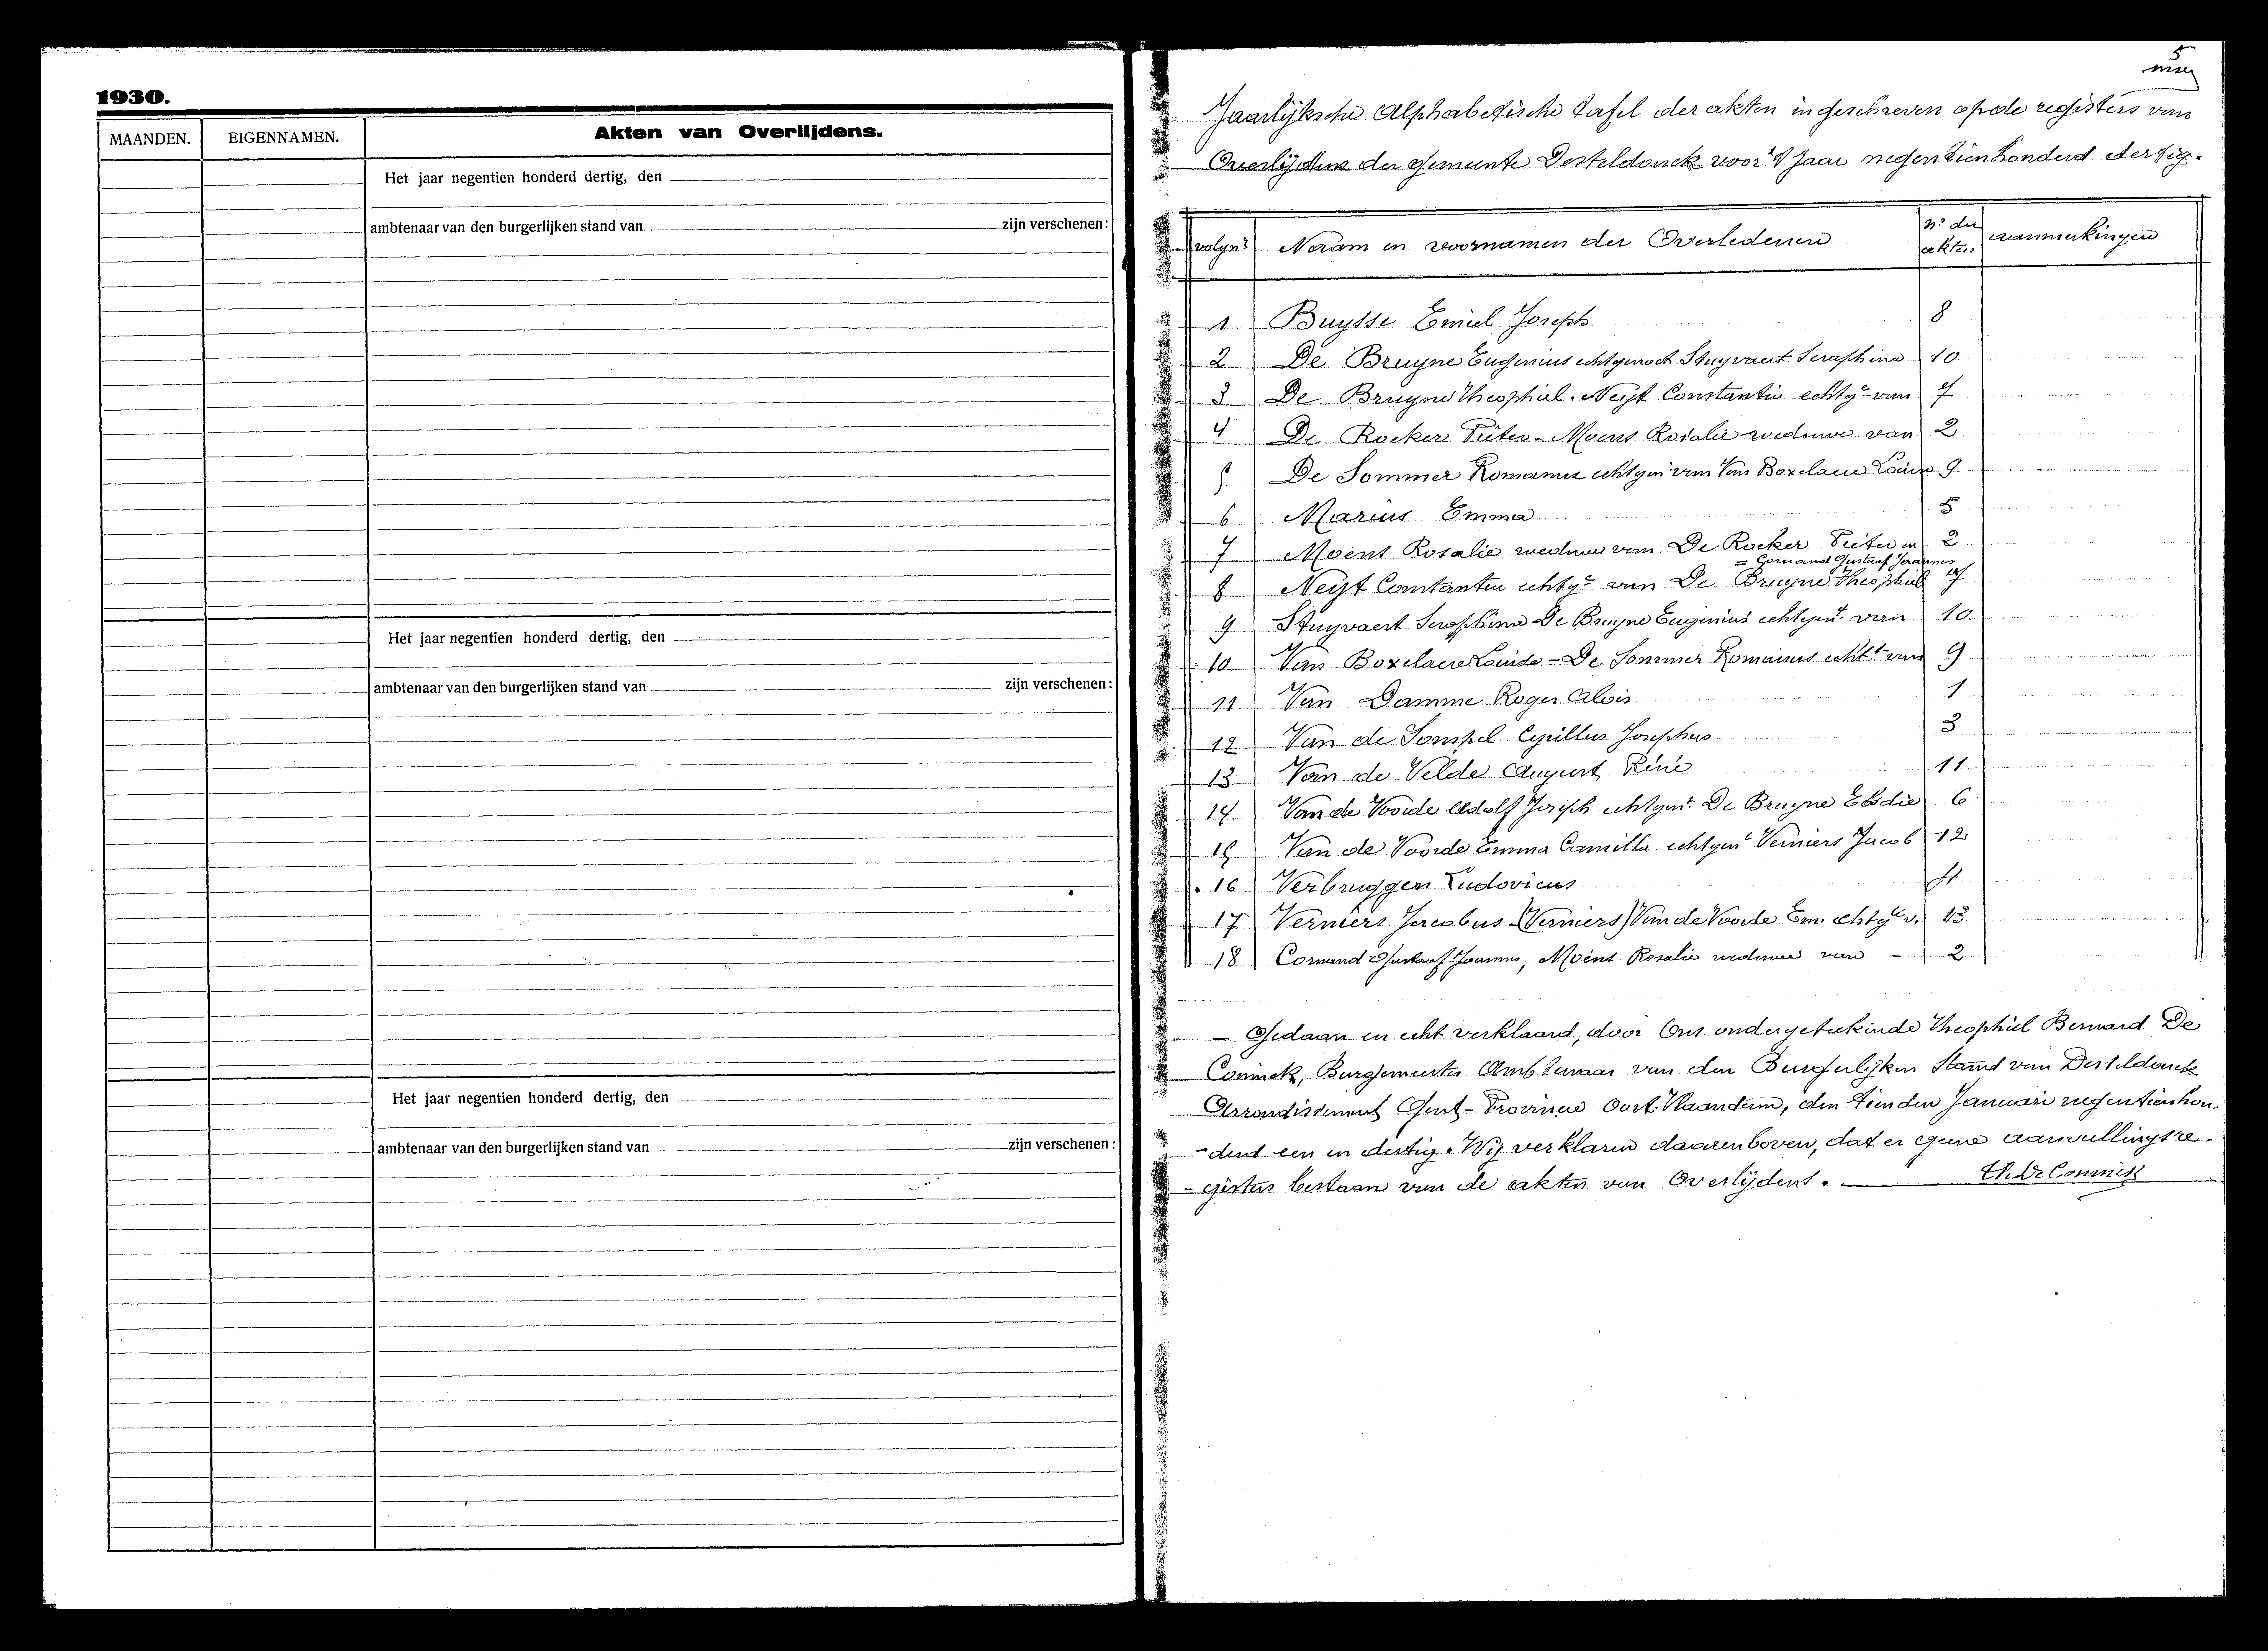 1930.
MAANDEN. EIGENNAMEN. Akten van Overlijdens.
Het jaar negentien honderd dertig, den
ambtenaar van den burgerlijken stand van zijn verschenen:
Het jaar negentien honderd dertig, den
ambtenaar van den burgerlijken stand van zijn verschenen:
Het jaar negentien honderd dertig, den
ambtenaar van den burgerlijken stand van zijn verschenen:
5
Jaarlijksche Alphabetische tafel der akten ingeschreven op de registers van
Overlijdens der gemeente Desteldonck voor 't jaar negentien honderd dertig.
volgnr Naam en voornamen der Overledenen Nr der akten aanmerkingen
1 Buysse Emiel Joseph 8
2 De Bruyne Eugenius echtgenoot Stuyvaert Seraphina 10
3 De Bruyne Theophiel. Neyt Constantin echtge van 7
4 De Rocker Pieter - Moens Rosalie weduwe van 2
5 De Sommer Romanus echtgen van Van Boxelaere Louise 9
6 Marius Emma 5
7 Moens Rosalie weduwe van De Rocker Pieter en 2
= Cornand Gustaaf Joannes
8 Neyt Constantin echtge van De Bruyne Theophiel 7
9 Stuyvaert Seraphina De Bruyne Eugenius echtgent van 10
10 Van Boxelaere Louise - De Sommer Romanus echtt van 9
11 Van Damme Roger Alois 1
12 Van de Sompel Cyrillus Josephus 3
13 Van de Velde August René 11
14 Van de Voorde Adolf Joseph echtgent De Bruyne Elodie 6
15 Van de Voorde Emma Camilla echtgent Verniers Jacob 12
16 Verbruggen Ludovicus 4
17 Verniers Jacobus (Verniers) Van de Voorde Em. echtge v. 13
18 Cornand Gustaaf Joannes, Moens Rosalie weduwe van - 2
- Gedaan en echt verklaard, door Ons ondergeteekende Theophiel Bernard De
Coninck, Burgemeester Ambtenaar van den Burgerlijken Stand van Desteldonck
Arrondissement Gent - Provincie Oost-Vlaanderen, den tienden Januari negentienhon-
-derd een en dertig. Wij verklaren daarenboven, dat er geene aanvullingsre-
-gisters bestaan van de akten van Overlijdens.
Th. De Coninck